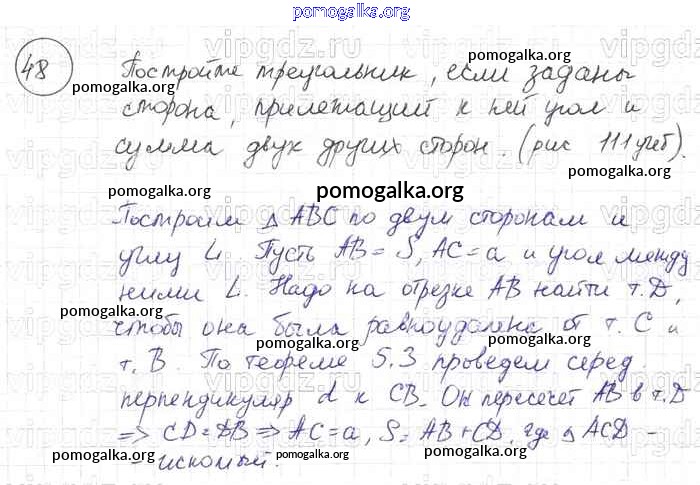 pomogalka.org
48
Постройте треугольник, если заданы
сторона, прилежащий к ней угол и
сумма двух других сторон. (рис 111 учеб).
pomogalka.org
pomogalka.org
pomogalka.org
pomogalka.org
pomogalka.org
Построим △ ABC по двум сторонам и
углу L. Пусть AB = S, AC = a и угол между
ними L. Надо на отрезке AB найти т. D,
чтобы она была равноудалена от т. C и
т. B. По теореме 5.3 проведем серед.
перпендикуляр d к CB. Он пересечет AB в т. D
=> CD = DB => AC = a, S = AB + CD, где △ ACD –
– искомый.
pomogalka.org
pomogalka.org
pomogalka.org
pomogalka.org
pomogalka.org
pomogalka.org
pomogalka.org
pomogalka.org
vipgdz.ru
vipgdz.ru